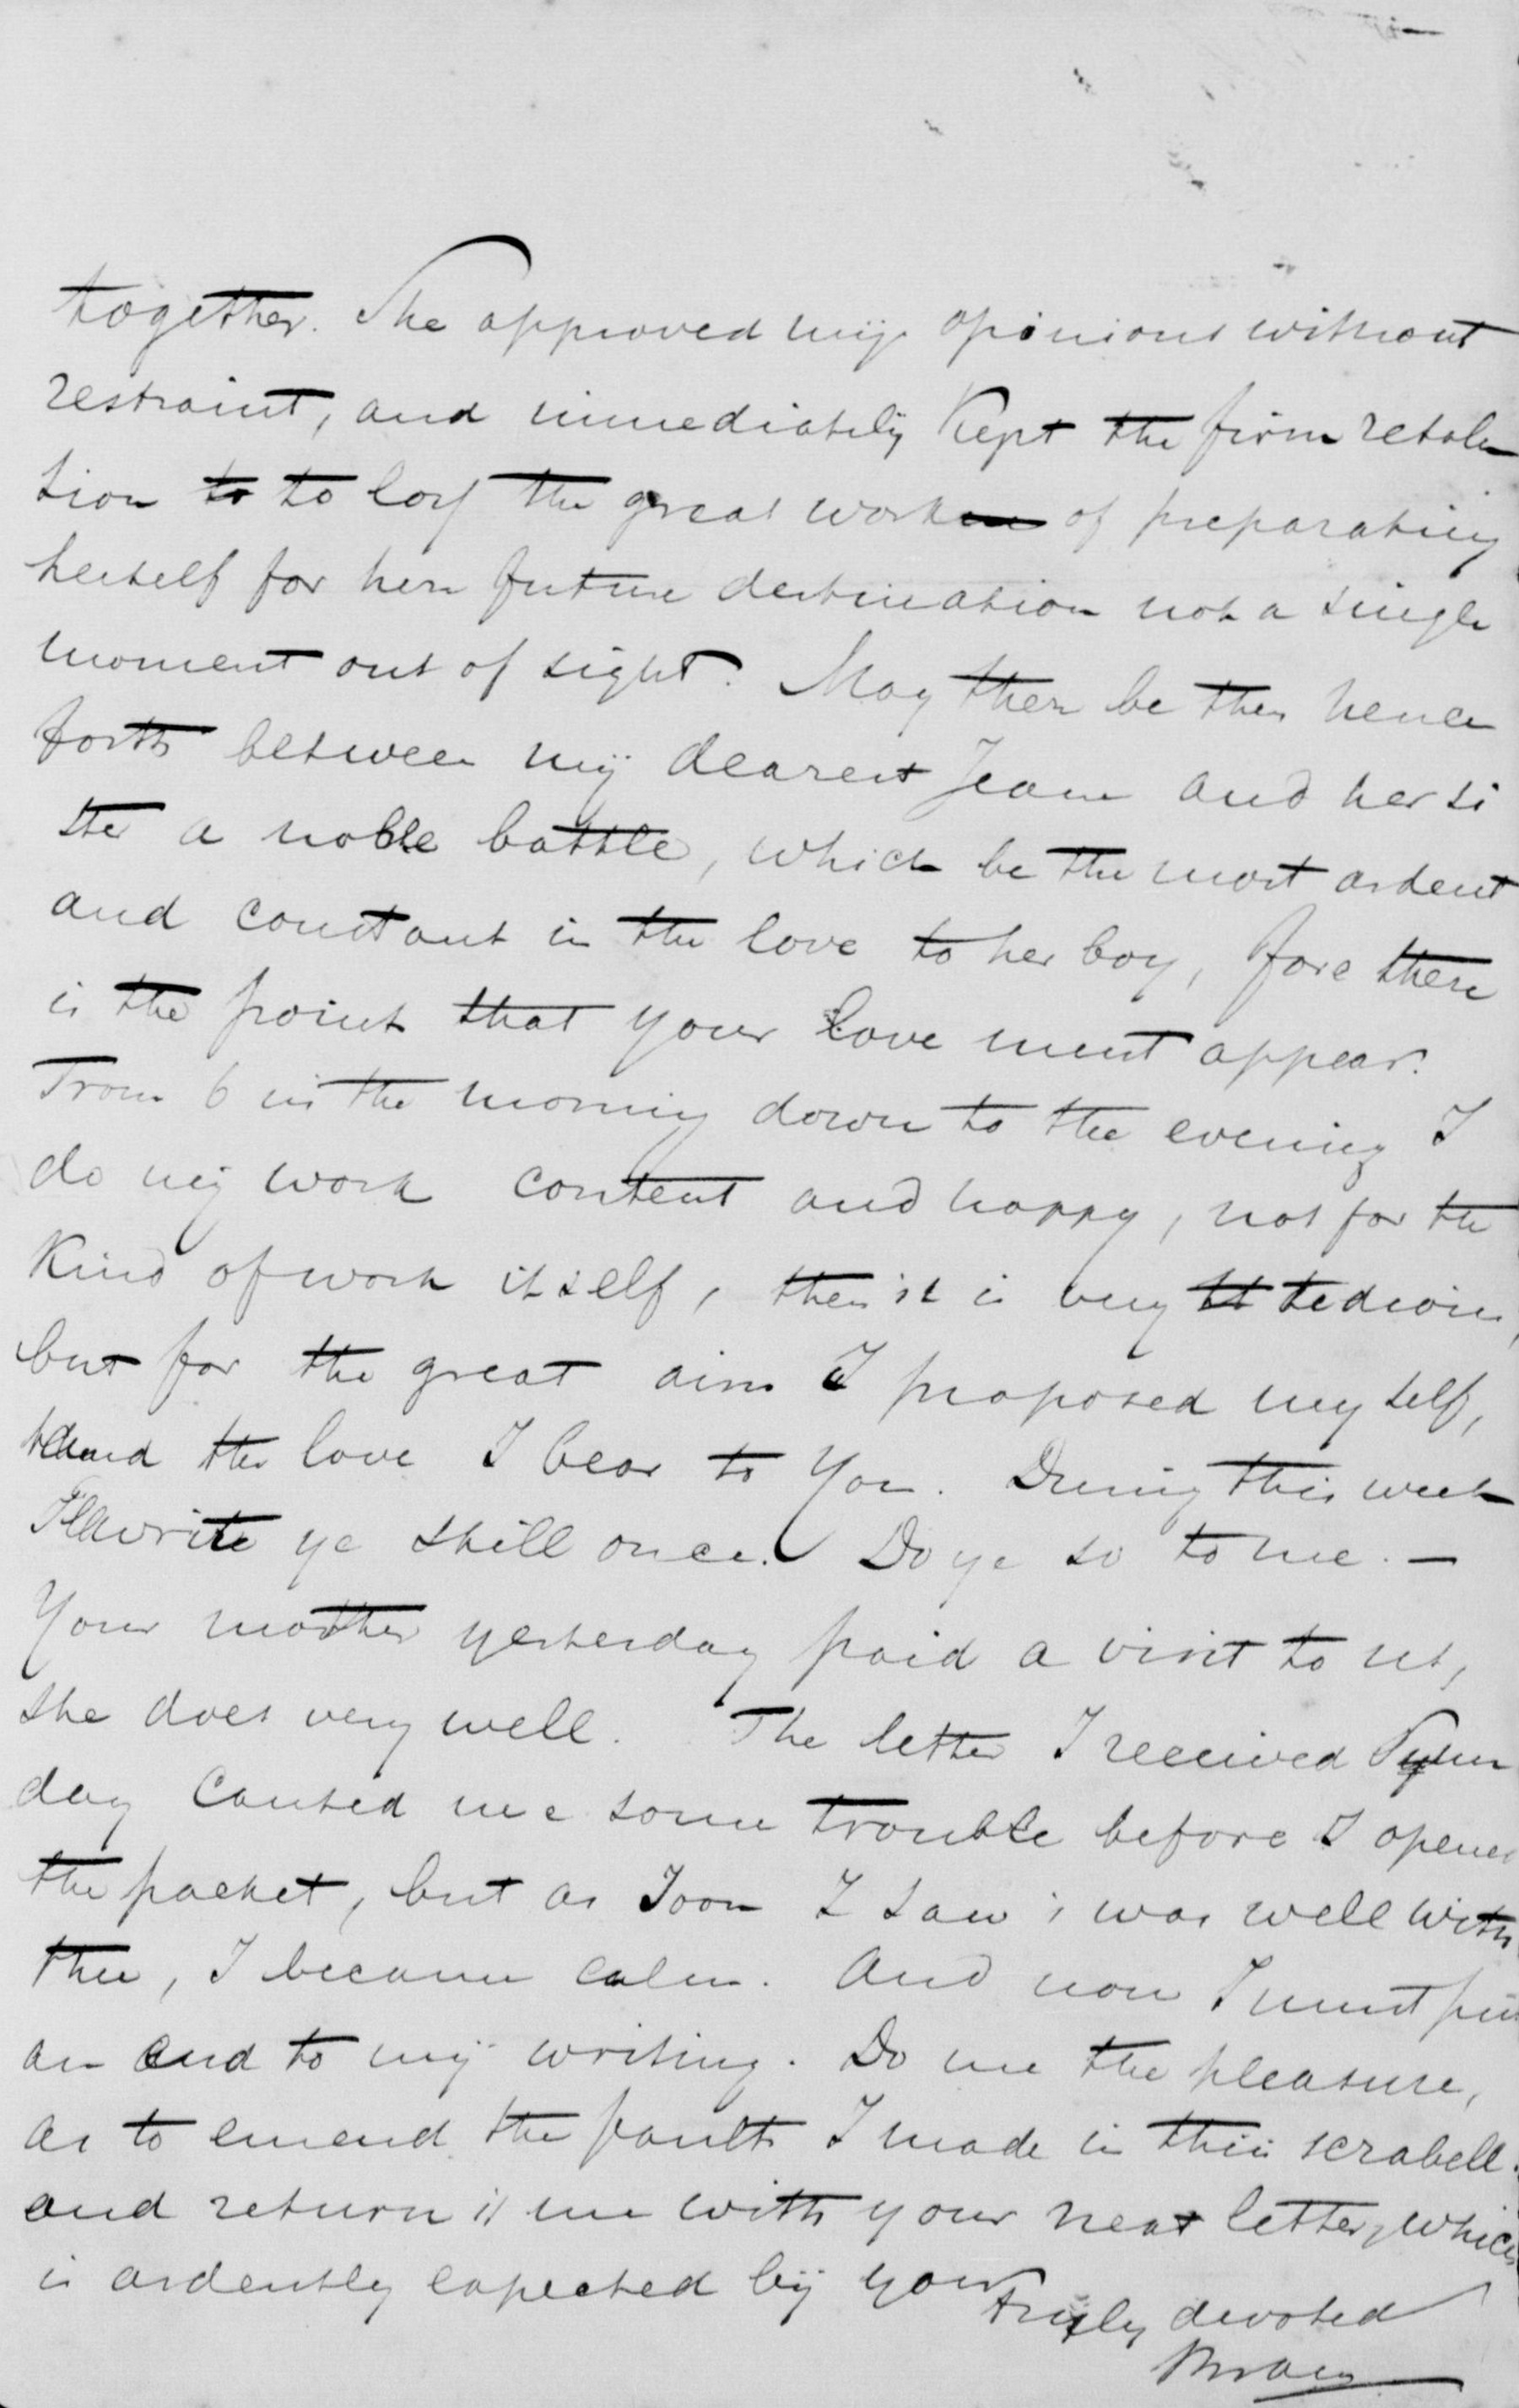 together. She approved mÿ opinions without
restraint, and immediatelÿ Kept the firm resolu
tion to to losf the great work of preparating
herself for here future destination not a single
moment out of sight. May there be then hence
forth between mÿ dearest Jeane and her si
ster a noble battle, which be the most ardent
and constant in the love to her boy, fore there
is the point that your love must appear.
From 6 in the morning down to the evening I
do mÿ work content and happy, not for the
Kind of work itself, then it is very tt tedious,
but for the great aim I proposed my self,
and the love I bear to You. During this week
I'll write ye still once. Do ye so to me. —
Your mother yesterday paid a visit to us,
she does very well. The letter I received
day caused me some trouble before I opened
the packet, but as soon I saw i was well with
thee, I became calm. And now I must put
an end to mÿ writing. Do me the pleasure,
as to emend the faults I made in this scrabell.
and return it me with your next letter, which
is ardently expected bÿ your
truly devoted